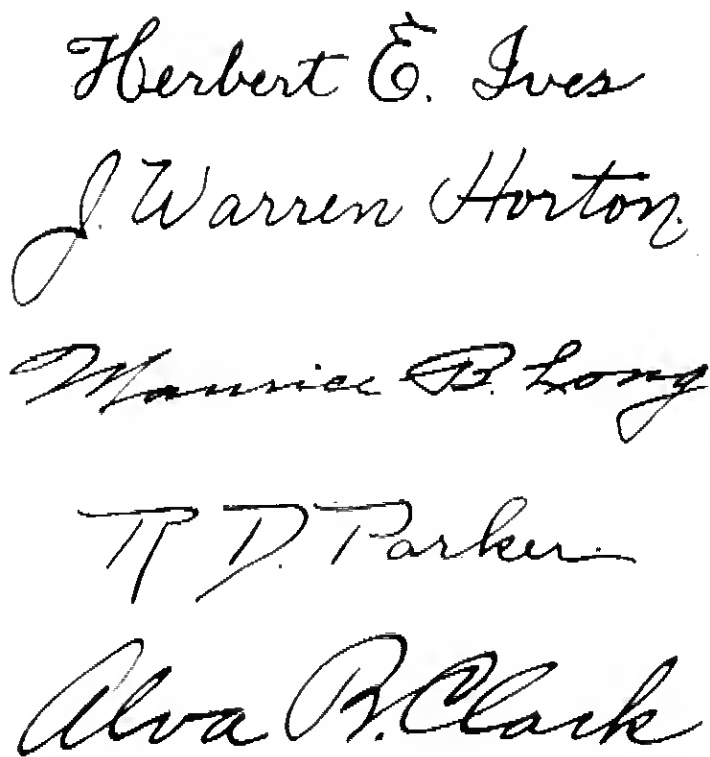 Herbert E. Ives
J. Warren Horton.
Maurice B. Long
R D. Parker
Alva B. Clark